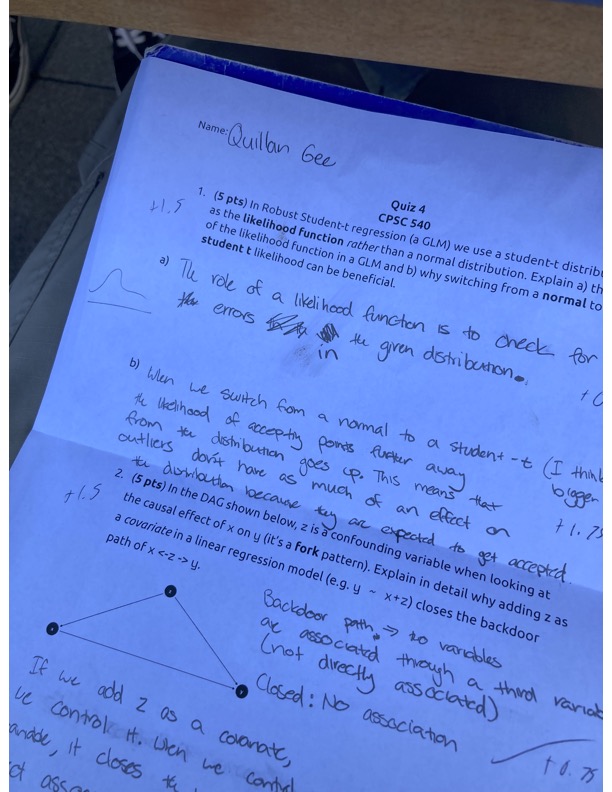 Name: Quillan Gee
Quiz 4
CPSC 540
+1.5
1. (5 pts) In Robust Student-t regression (a GLM) we use a student-t distrib
as the likelihood function rather than a normal distribution. Explain a) th
of the likelihood function in a GLM and b) why switching from a normal to
student t likelihood can be beneficial.
a) The role of a likelihood function is to check for
the errors in the given distribution.
b) When we switch from a normal to a student-t (I think
the likelihood of accepting points further away bigger
from the distribution goes up. This means that
outliers don't have as much of an effect on +1.75
the distribution because they are expected to get accepted.
+1.5
2. (5 pts) In the DAG shown below, z is a confounding variable when looking at
the causal effect of x on y (it's a fork pattern). Explain in detail why adding z as
a covariate in a linear regression model (e.g. y ~ x+z) closes the backdoor
path of x <-z -> y.
Backdoor path ⇒ two variables
are associated through a third variab
(not directly associated)
Closed: No association
+0.75
If we add z as a covariate,
we control it. When we control
variable, it closes the
ct asso